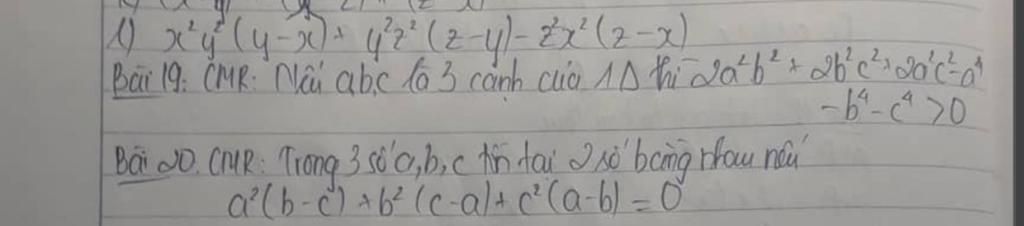 1) x²y²(y-x) + y²z²(z-y) - z²x²(z-x)
Bài 19: CMR: Nếu a,b,c là 3 cạnh của 1Δ thì 2a²b² + 2b²c² + 2a²c² - a⁴
- b⁴ - c⁴ > 0
Bài 20. CMR: Trong 3 số a, b, c tồn tại 2 số bằng nhau nếu
a²(b-c) + b²(c-a) + c²(a-b) = 0